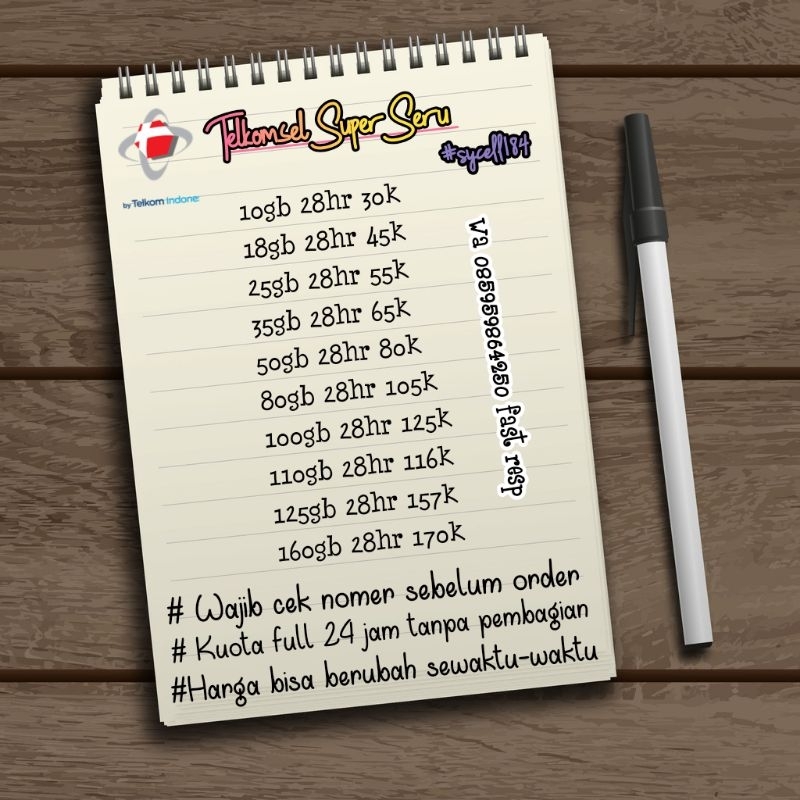 Telkomsel Super Seru
#sycell184
by Telkom Indone
10gb 28hr 30k
18gb 28hr 45k
25gb 28hr 55k
35gb 28hr 65k
50gb 28hr 80k
80gb 28hr 105k
100gb 28hr 125k
110gb 28hr 116k
125gb 28hr 157k
160gb 28hr 170k
Wa 085959864250 fast resp
# Wajib cek nomer sebelum order
# Kuota full 24 jam tanpa pembagian
#Harga bisa berubah sewaktu-waktu